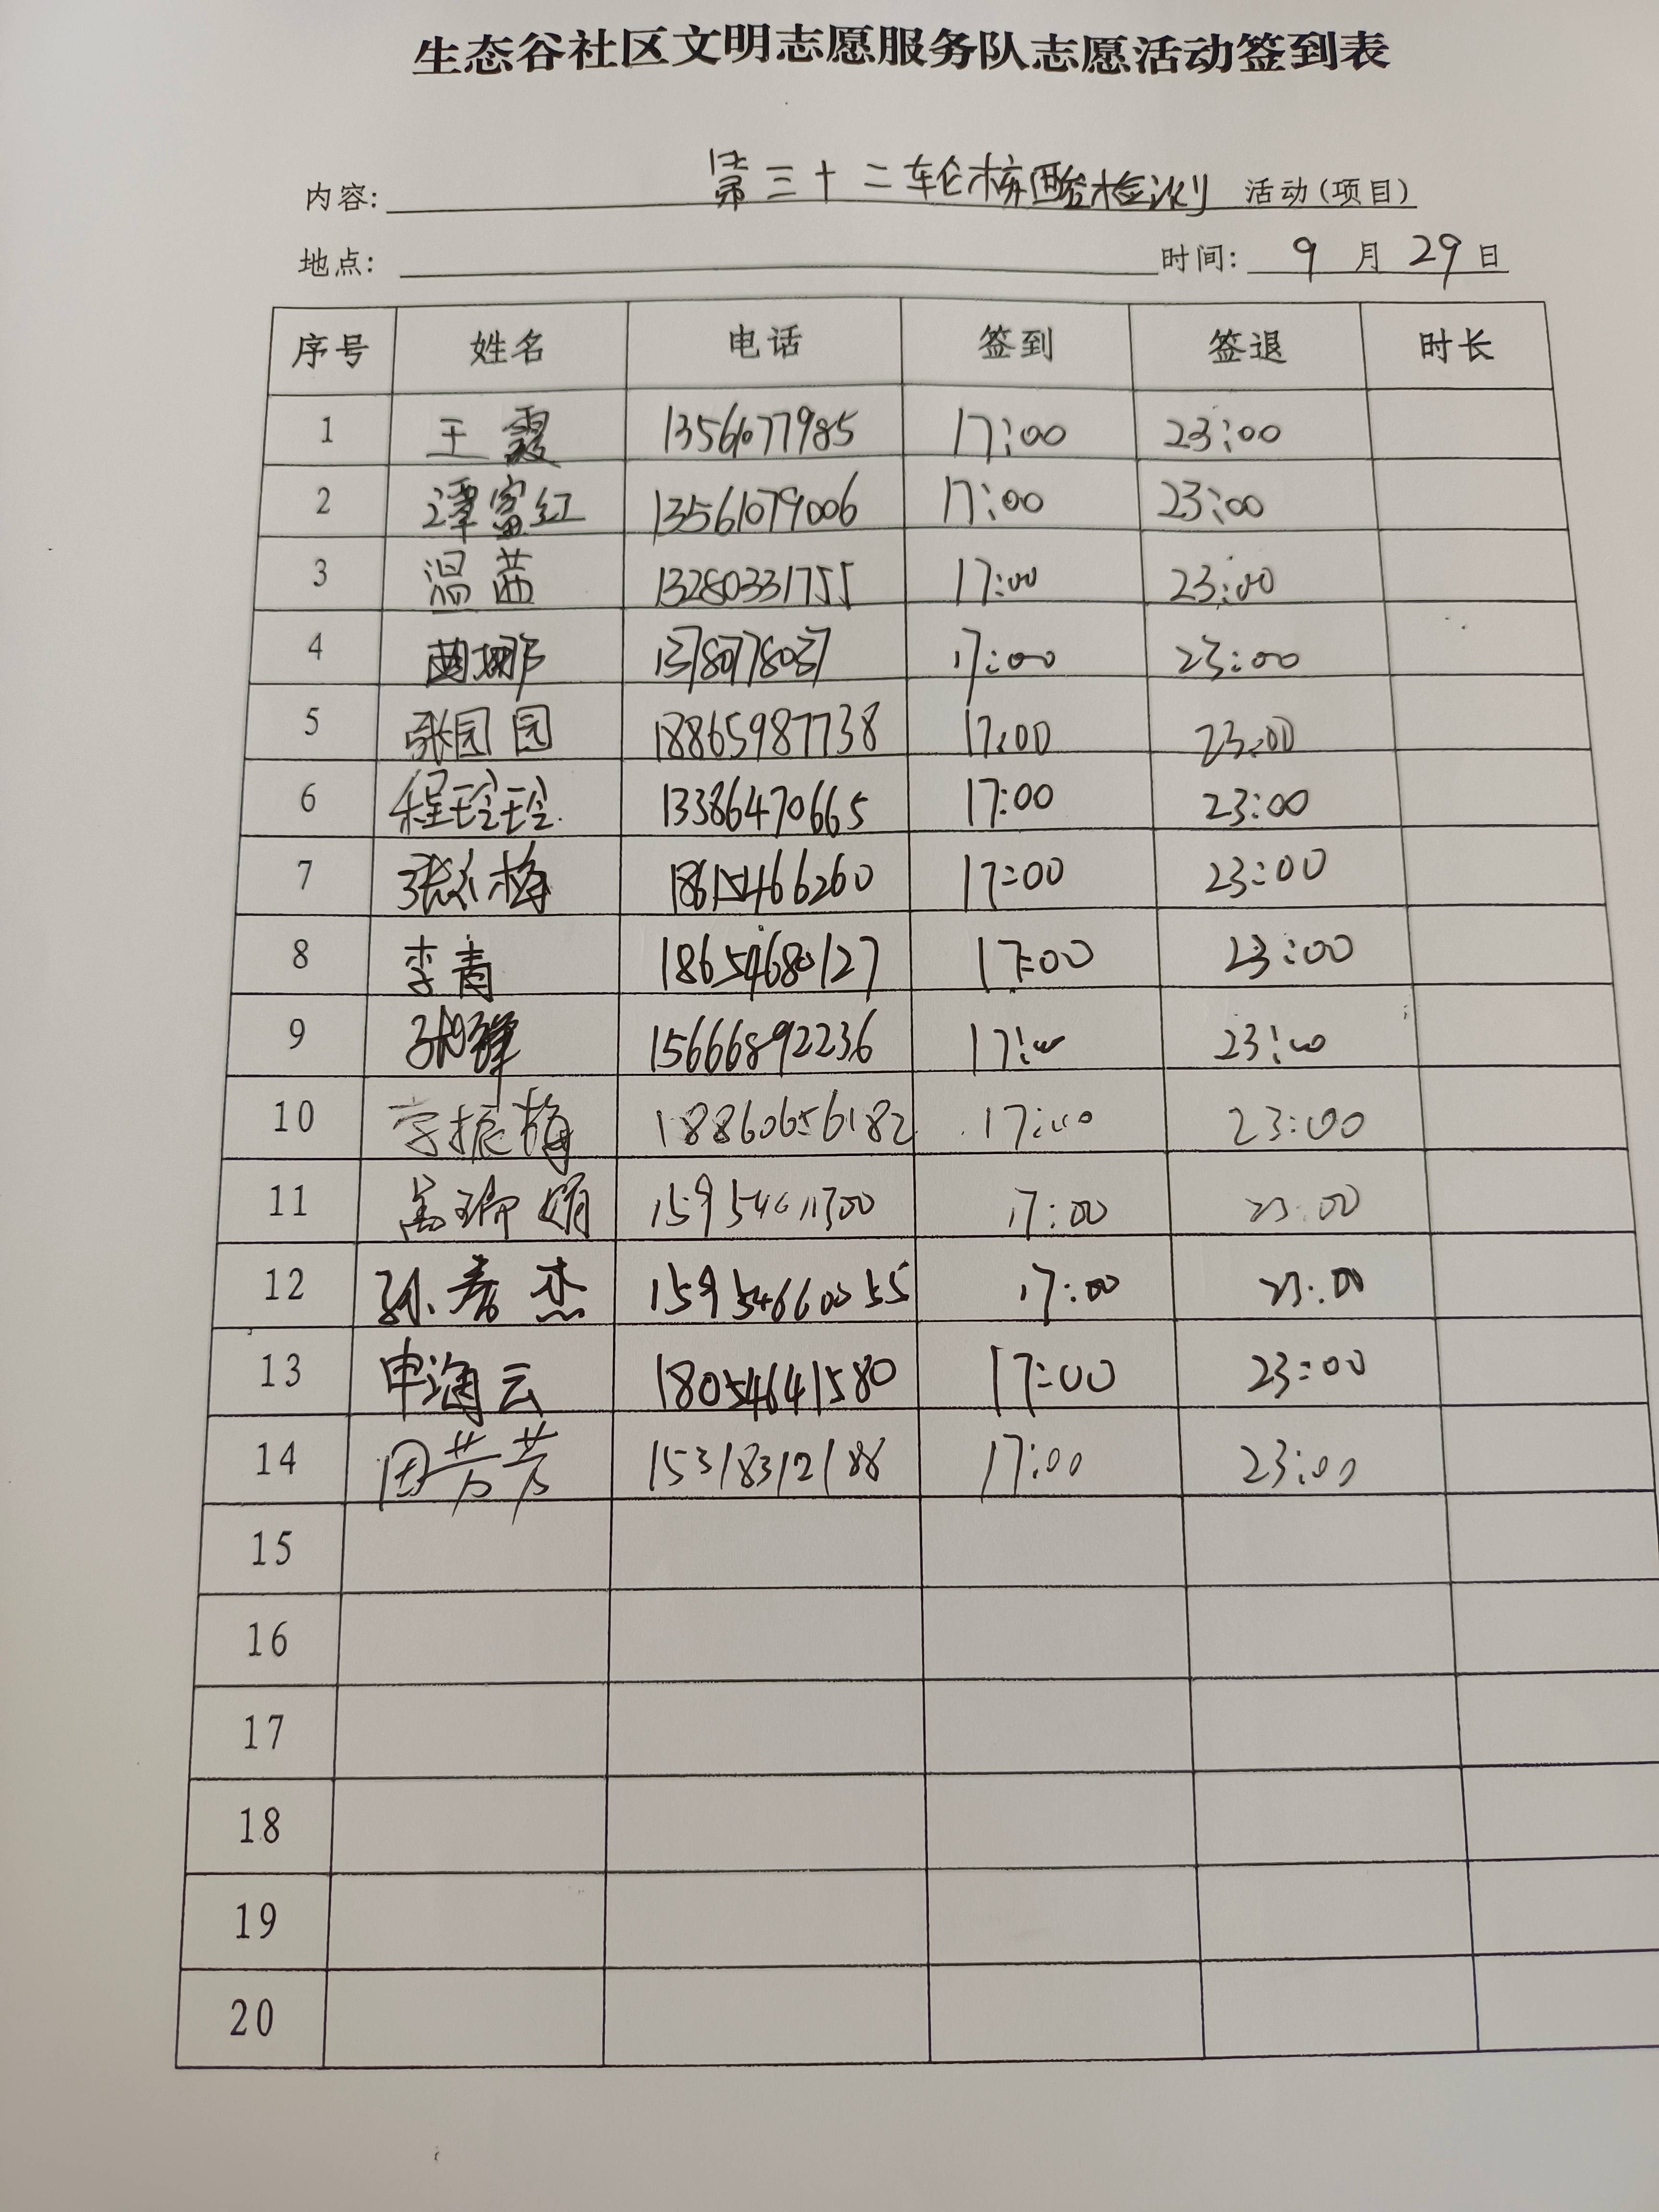 生态谷社区文明志愿服务队志愿活动签到表
内容: 第三十二轮核酸检测 活动(项目)
地点: 时间: 9 月 29 日
序号 姓名 电话 签到 签退 时长
1 王霞 1356077985 17:00 23:00
2 谭富红 13561079006 17:00 23:00
3 温茜 13280331755 17:00 23:00
4 曲娜 17:00 23:00
5 张园园 18865987738 17:00 23:00
6 程玲玲 13386470665 17:00 23:00
7 18615466260 17:00 23:00
8 李青 18654680127 17:00 23:00
9 15666892236 17:00 23:00
10 18860656182 17:00 23:00
11 17:00 23:00
12 孙春杰 15954660055 17:00 23:00
13 申海云 18054641580 17:00 23:00
14 田芳芳 15318312188 17:00 23:00
15
16
17
18
19
20